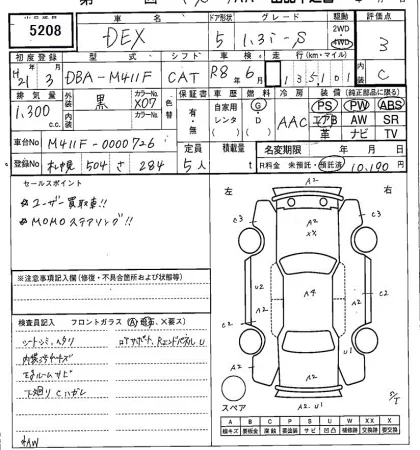 出品番号 車名 ドア形状 グレード 駆動 評価点
5208 DEX 5 1.3i-S 2WD・4WD 3
初度登録 型式 シフト 車検 走行(km・マイル) 内装
H21 3 DBA-M411F CAT R8年6月 13,5101 C
排気量 外装 黒 カラーNo. X07 色替 保証書 車歴 燃料 冷房 装備(純正部品に限る)
1,300 c.c. 内装 カラーNo. 有・無 自家用 レンタ G D AAC PS PW ABS
エアB AW SR
革 ナビ TV
車台No M411F-0000726 定員 積載量 名変期限 年 月 日
登録No 札幌 504 さ 284 5人 t R料金 未預託・預託済 10,190円
セールスポイント
ユーザー買取車!!
MOMOステアリング!!
左 右
A2
C3 A2 C3
XX
U2 A4 A2
A2
C2 C2
U1
A2
A2・U1
※注意事項記入欄(修復・不具合箇所および交換跡等)
検査員記入 フロントガラス(A・飛石・X要ス)
シートシミ、ヘタリ コアサポート、RエンドパネルU
内装うちキズ
下廻りCハガレ
社AW
スペア
A B C P S U W XX X
線キズ 要板金 腐食 要塗装 サビ 凹凸 補修跡 交換跡 要交換